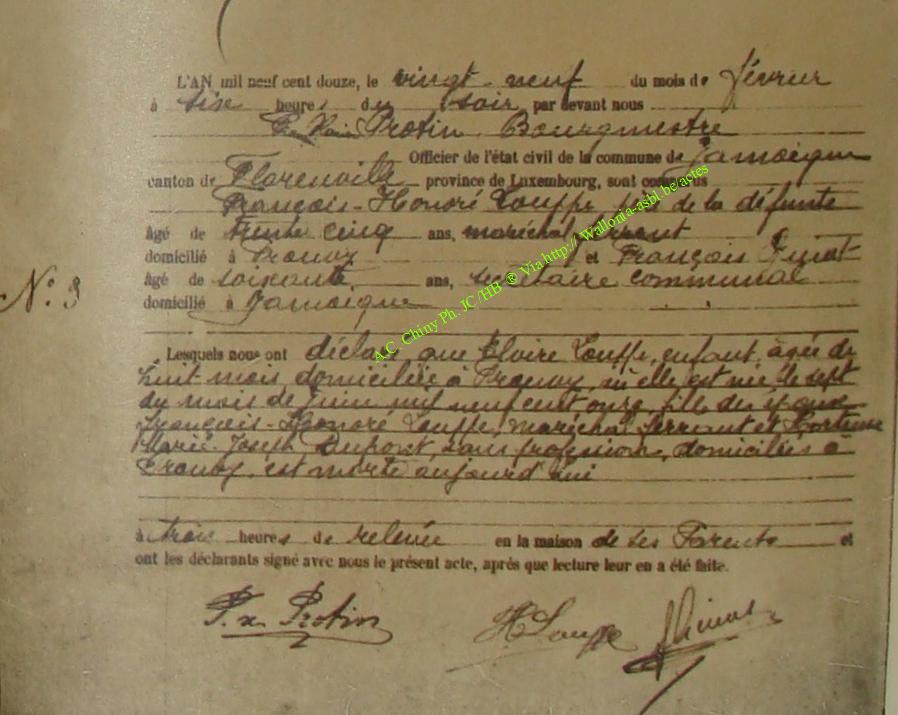 L'AN mil neuf cent douze, le vingt neuf du mois de février
à six heures du soir par devant nous
Protin Bourgmestre
Officier de l'état civil de la commune de Jamoigne
canton de Florenville province de Luxembourg, sont comparus
François-Honoré Louppe de la défunte
âgé de trente cinq ans, maréchal ferrant
domicilié à Prouvy et François
âgé de soixante ans, secrétaire communal
domicilié à Jamoigne
N° 3
Lesquels nous ont déclaré que Elvire Louppe, enfant, âgée de
huit mois domiciliée à Prouvy, où elle est née le sept
du mois de Juin mil neuf cent onze, fille des époux
François-Honoré Louppe, maréchal ferrant et Hortense
Marie-Joseph Dupont, sans profession, domiciliés à
Prouvy, est morte aujourd'hui
à trois heures de relevée en la maison de ses Parents et
ont les déclarants signé avec nous le présent acte, après que lecture leur en a été faite.
Protin
H Louppe
A.C. Chiny Ph. JC /HB ® Via http:// Wallonia-asbl.be/actes